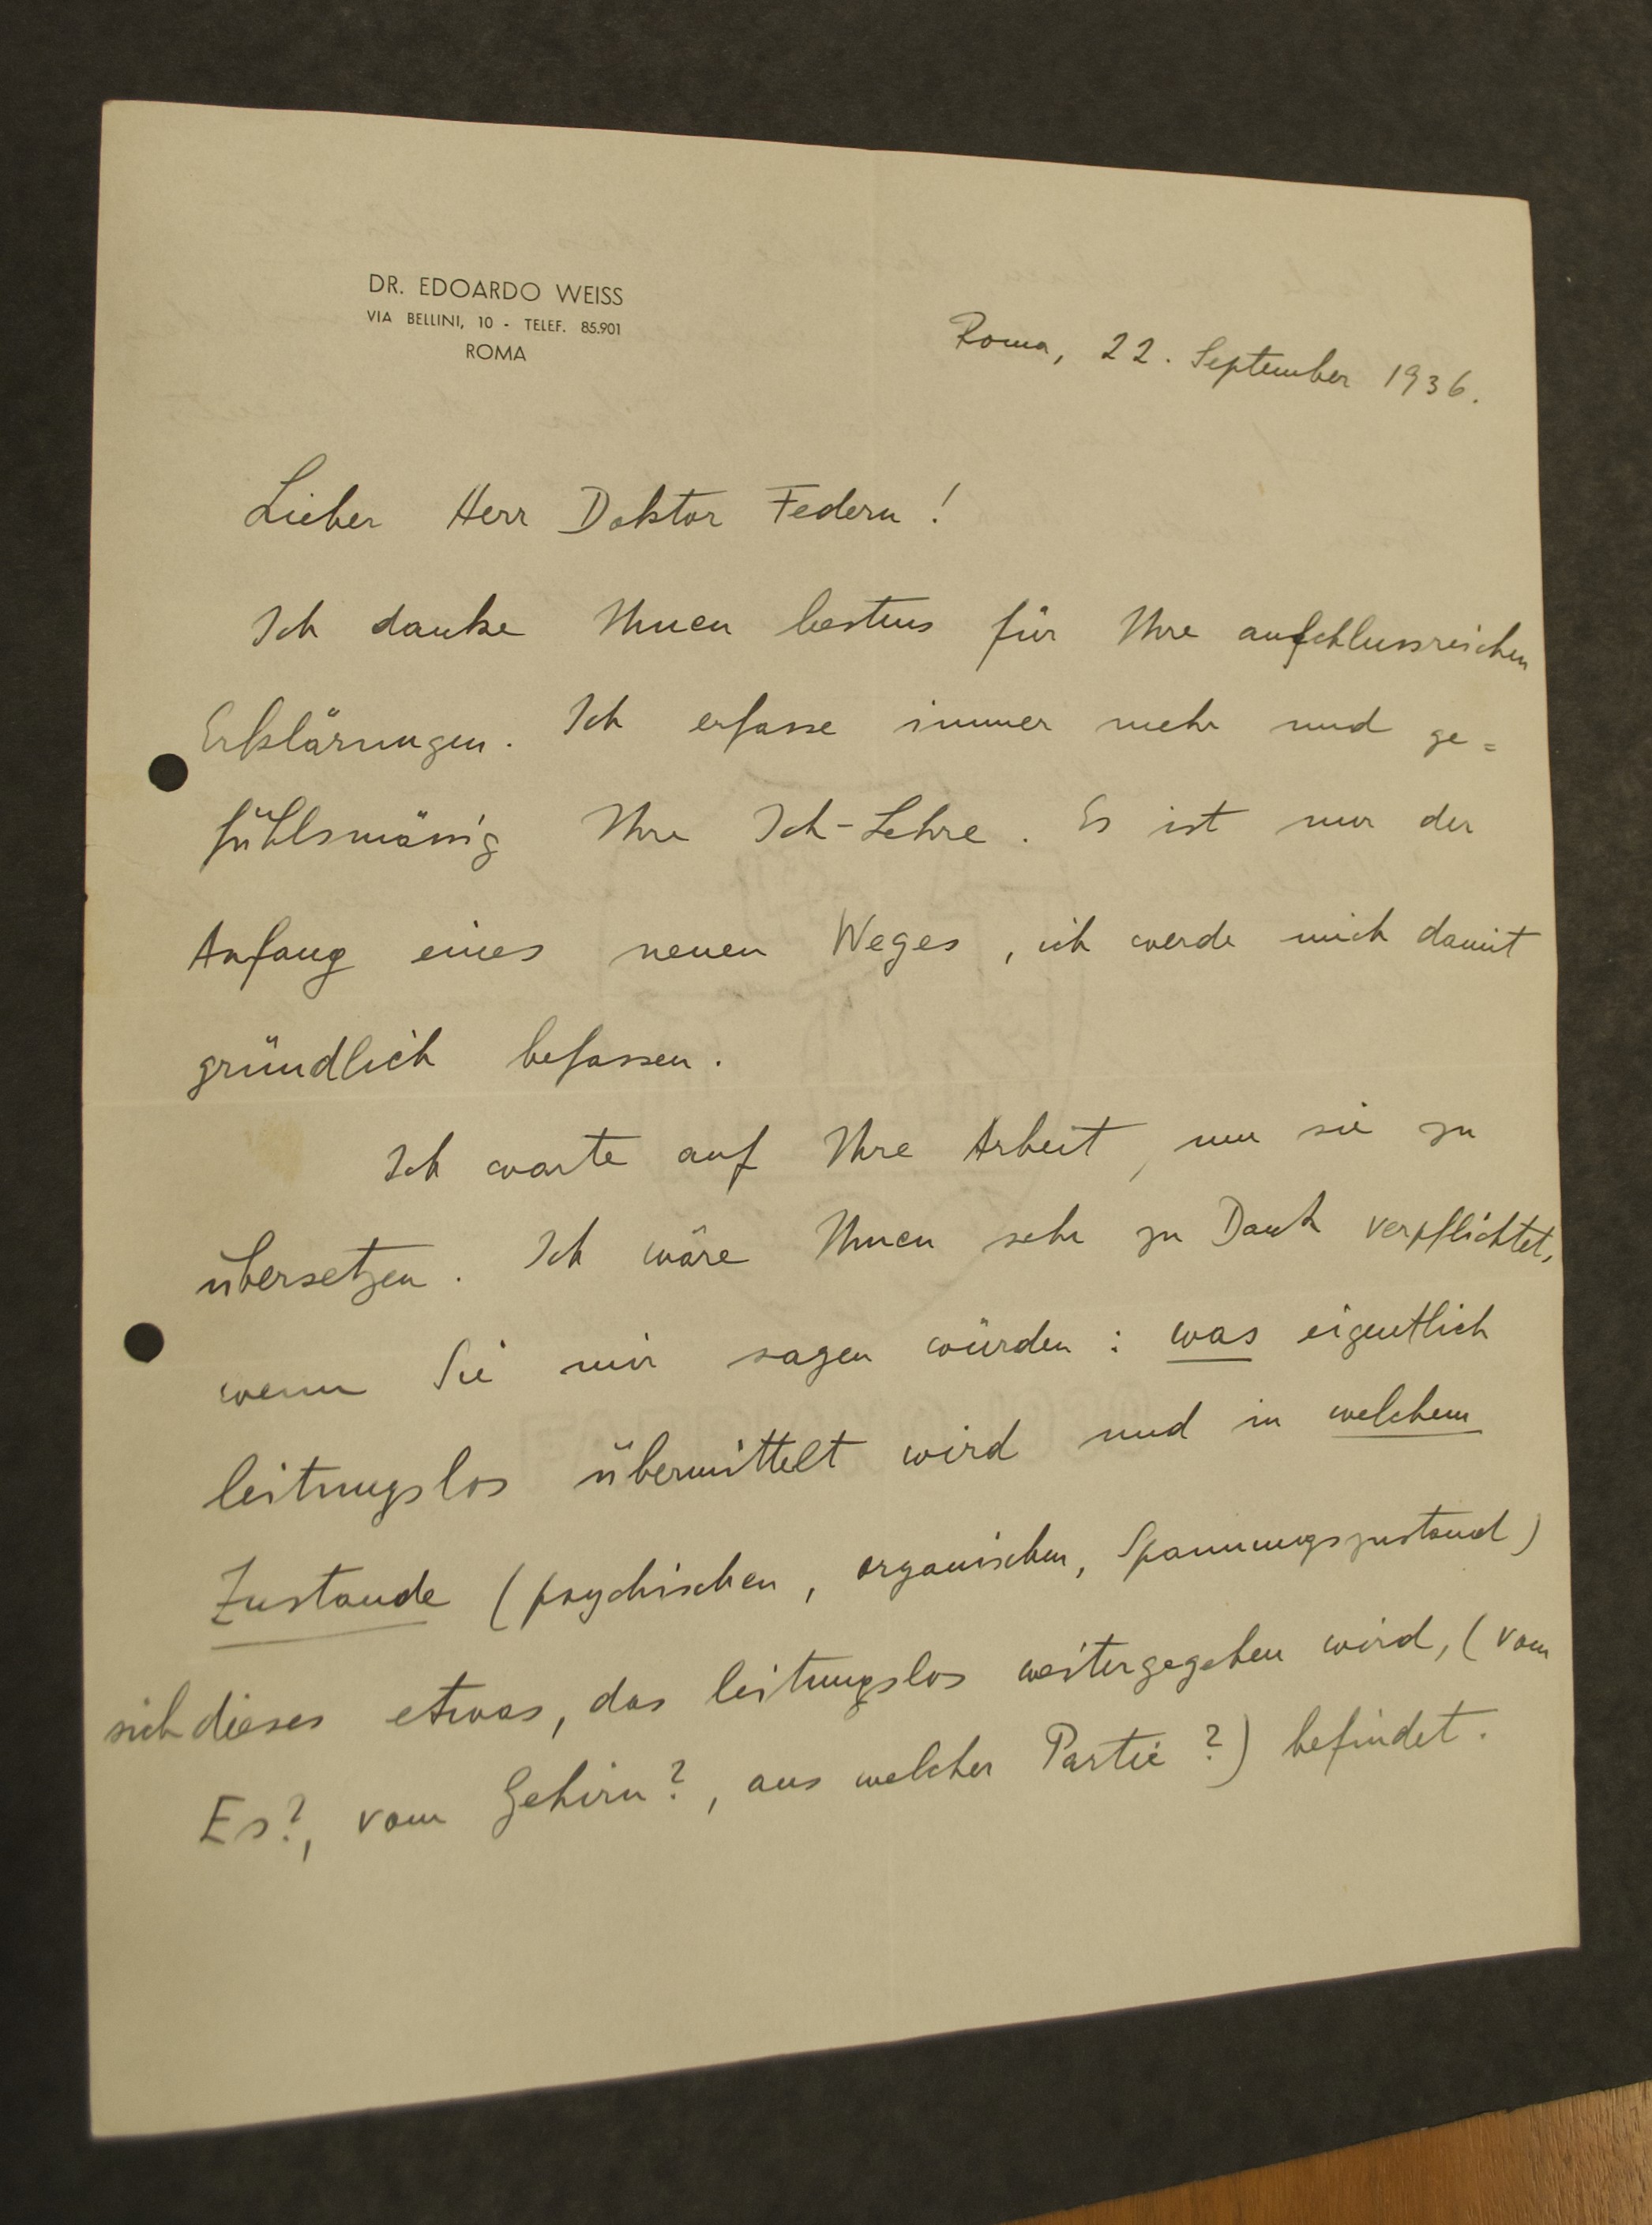 DR. EDOARDO WEISS
VIA BELLINI, 10 - TELEF. 85.901
ROMA
Roma, 22. September 1936.
Lieber Herr Doktor Federn!
Ich danke Ihnen bestens für Ihre aufschlussreichen
Erklärungen. Ich erfasse immer mehr und ge=
fühlsmässig Ihre Ich-Lehre. Es ist nur der
Anfang eines neuen Weges, ich werde mich damit
gründlich befassen.
Ich warte auf Ihre Arbeit, um sie zu
übersetzen. Ich wäre Ihnen sehr zu Dank verpflichtet,
wenn Sie mir sagen würden: was eigentlich
leitungslos übermittelt wird und in welchem
Zustande (psychischen, organischen, Spannungszustand)
sich dieses etwas, das leitungslos weitergegeben wird, (vom
Es?, vom Gehirn?, aus welcher Partie?) befindet.